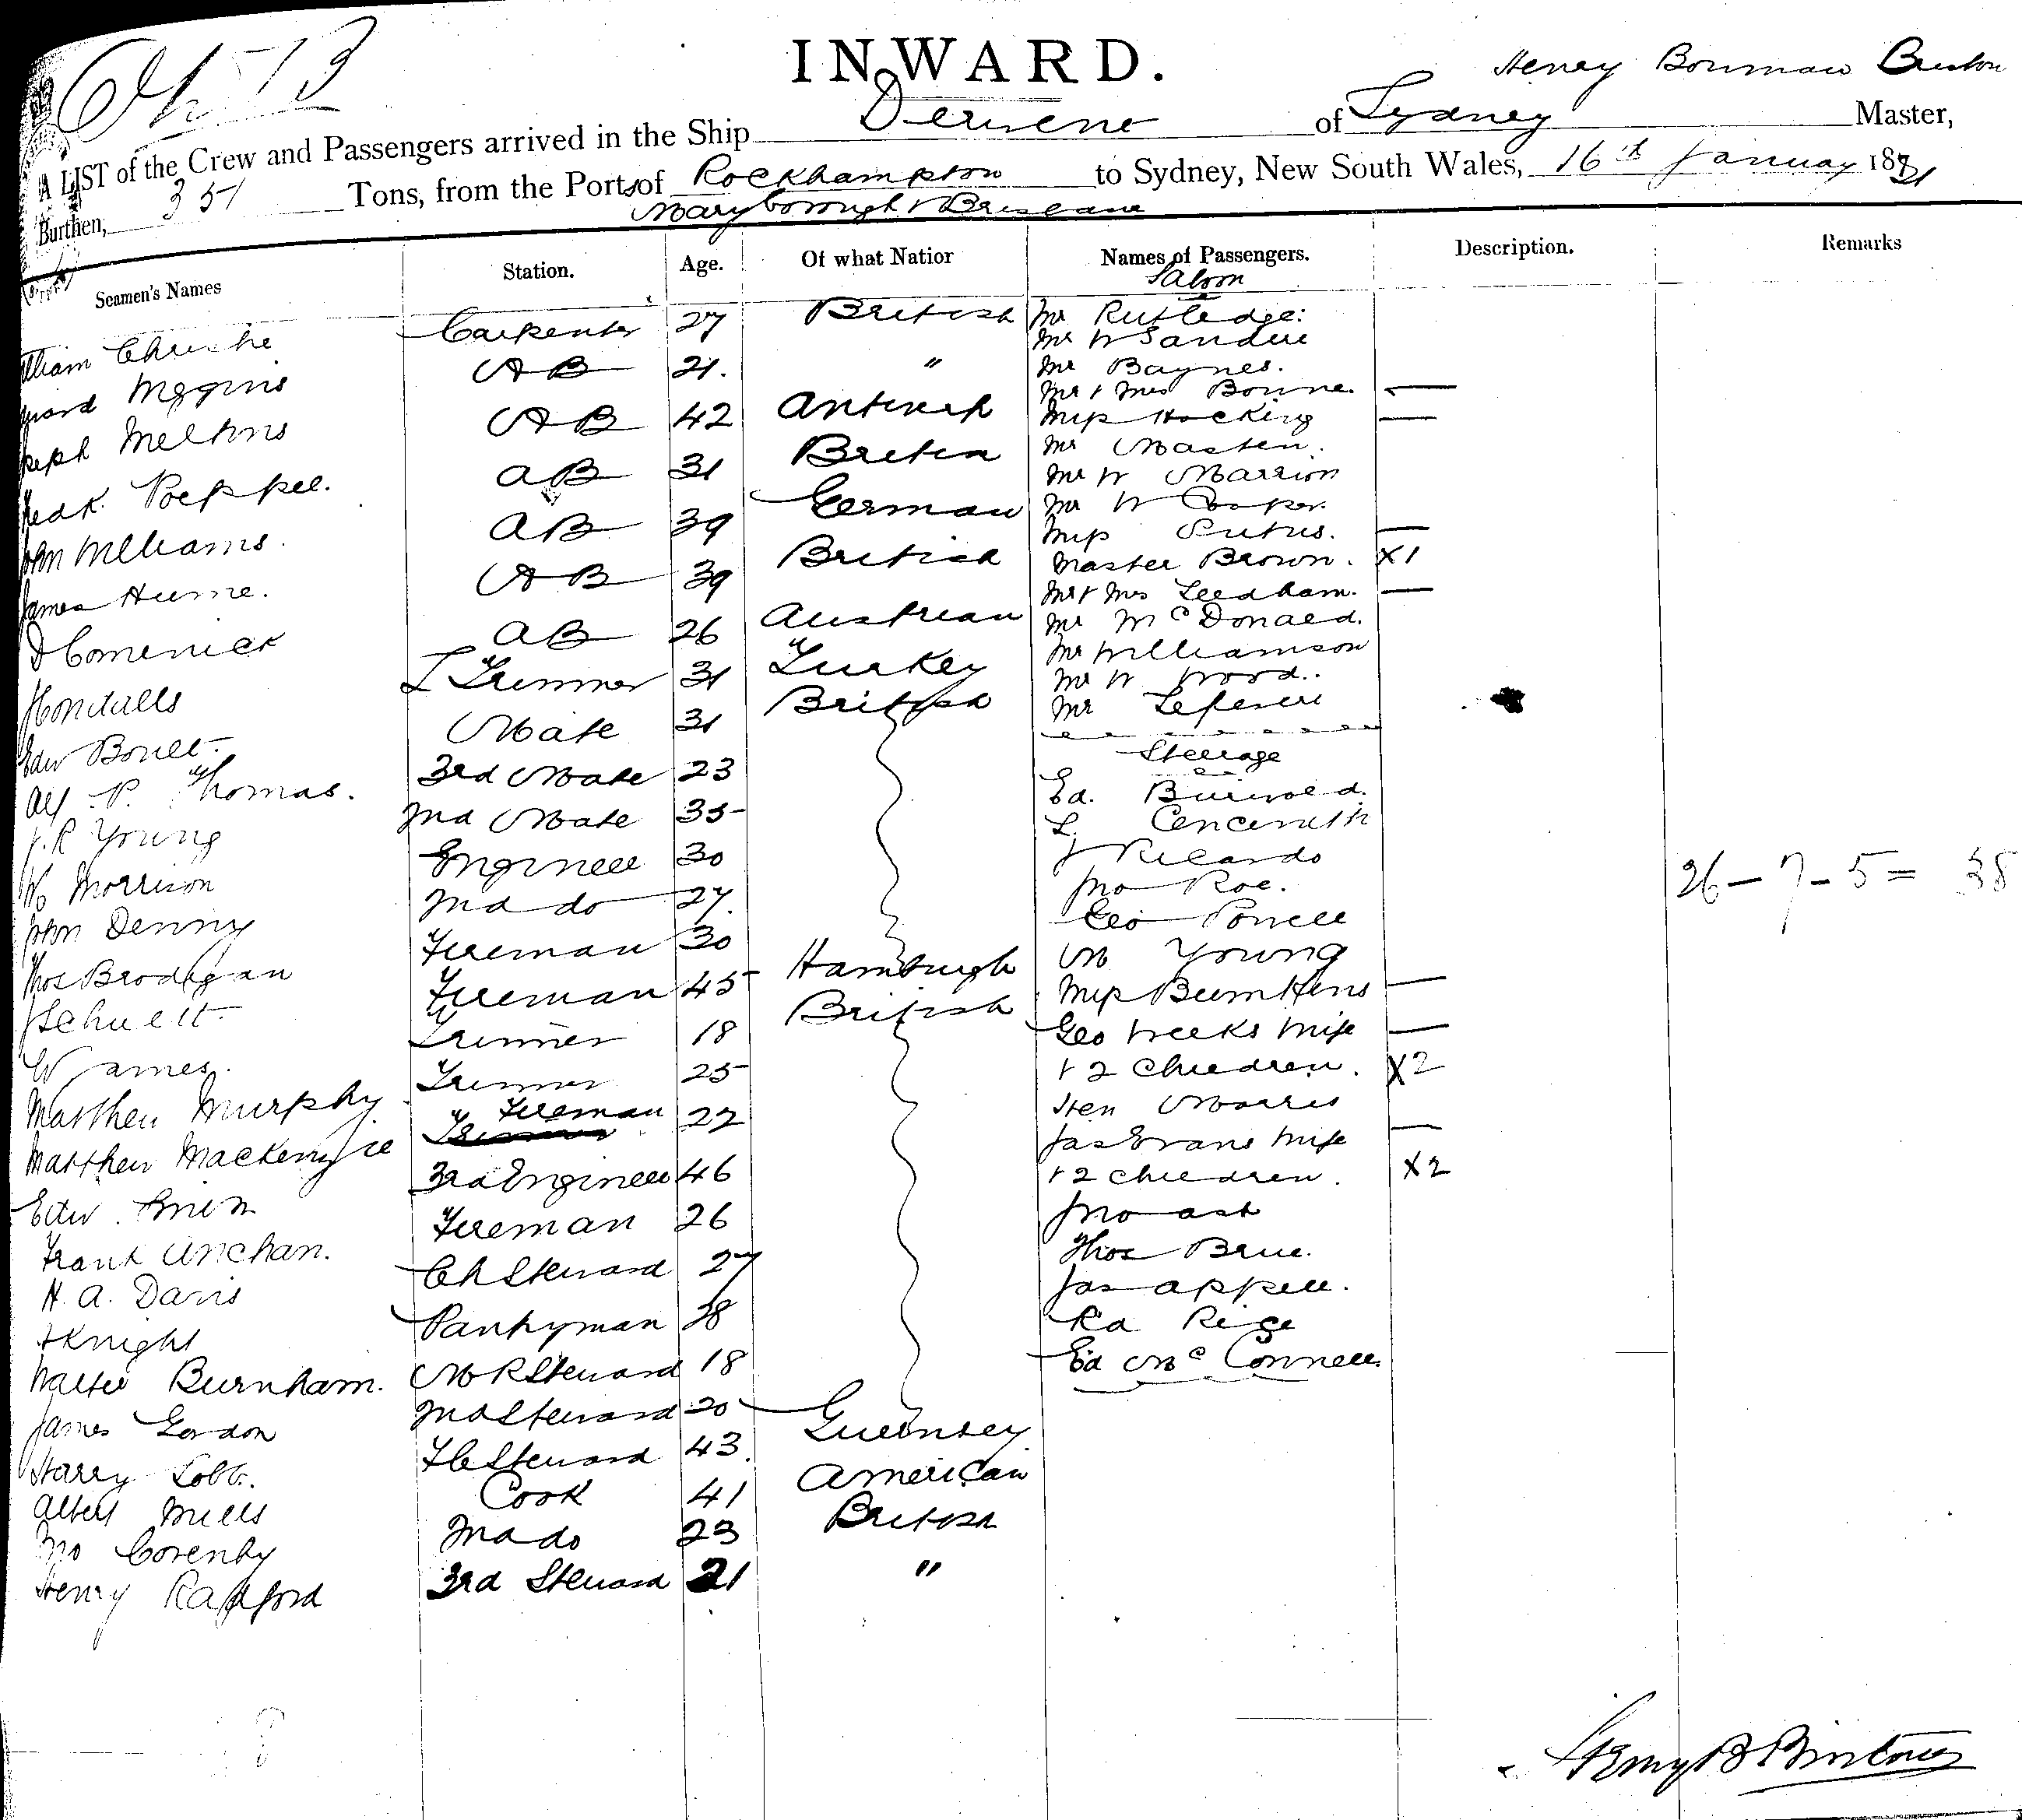 INWARD.
Henry Bowman
A LIST of the Crew and Passengers arrived in the Ship Derwent of Sydney Master,
Burthen, 351 Tons, from the Ports of Rockhampton to Sydney, New South Wales, 16th January 18
Maryborough & Brisbane
Seamen's Names Station. Age. Of what Natior Names of Passengers. Description. Remarks
Saloon
lliam Christie Carpenter 27 British Mr Rutledge:
Mr W
ward Wiggins AB 21. " Mr Baynes.
Mr & Mrs Bourne. —
seph AB 42 Antwerp Miss Hocking —
Mr Masten.
redk. Poeppel. AB 31 Mr W Marrion
Mr W Cooper.
ohn Williams. AB 39 German Miss Rufus. —
James Hume. AB 39 British Master Brown. X1
Mr & Mrs Leedham. —
AB 26 Austrian Mr McDonald.
Mr Williamson
Trimmer 31 Turkey Mr W Wood.
Edw Mate 31 British Mr
Steerage
Alf P. Thomas. 3rd Mate 23 Ed.
J.R Young 2nd Mate 35 L.
W Morrison Engineer 30 J Ricardo
Jno Roe.
John Denny 2nd do 27. Geo Powell
Thos Brodigan Fireman 30 M Young
Fireman 45 Hamburgh Miss —
W James. Trimmer 18 British Geo Weeks Wife —
Matthew Murphy Trimmer 25 & 2 Children. X2
Matthew Mackenzie Fireman 22 Hen Morris
Jas Evans Wife —
Edw. 3rd Engineer 46 & 2 Children. X2
Frank Fireman 26 Jno Ash
H. A. Davis Ch Steward 27 Thos
Knight Pantryman 28 Jas Appell.
Walter Burnham. Steward 18 Rd
James Gordon 2nd Steward 20 Ed McConnell
Harry Cobb. Steward 43. Guernsey
Albert Mills Cook 41 American
Jno Coventry 2nd do 23 British
Henry Radford 3rd Steward 21 "
26 – 7 – 5 = 38
Henry B